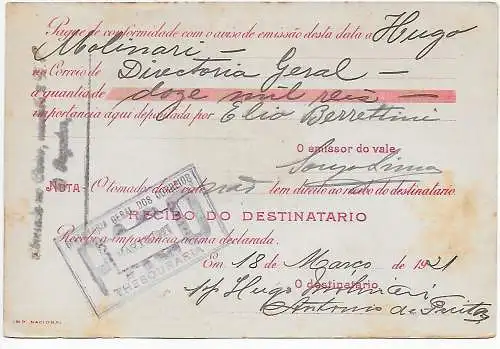 Pague de conformidade com o aviso de emissão desta data a Hugo
Molinari —
no Correio de Directoria Geral —
a quantia de doze mil reis —
importancia aqui depositada por Elio Berrettini
O emissor do vale
Souza Lima
NOTA - O tomador deste vale não tem direito ao recibo do destinatario
RECIBO DO DESTINATARIO
Recebi a importancia acima declarada.
Em 18 de Março de 1921
O destinatario
p/p Hugo Molinari
Antonio de Freitas
GERAL DOS CORREIOS
THESOURARIA
IMP. NACIONAL